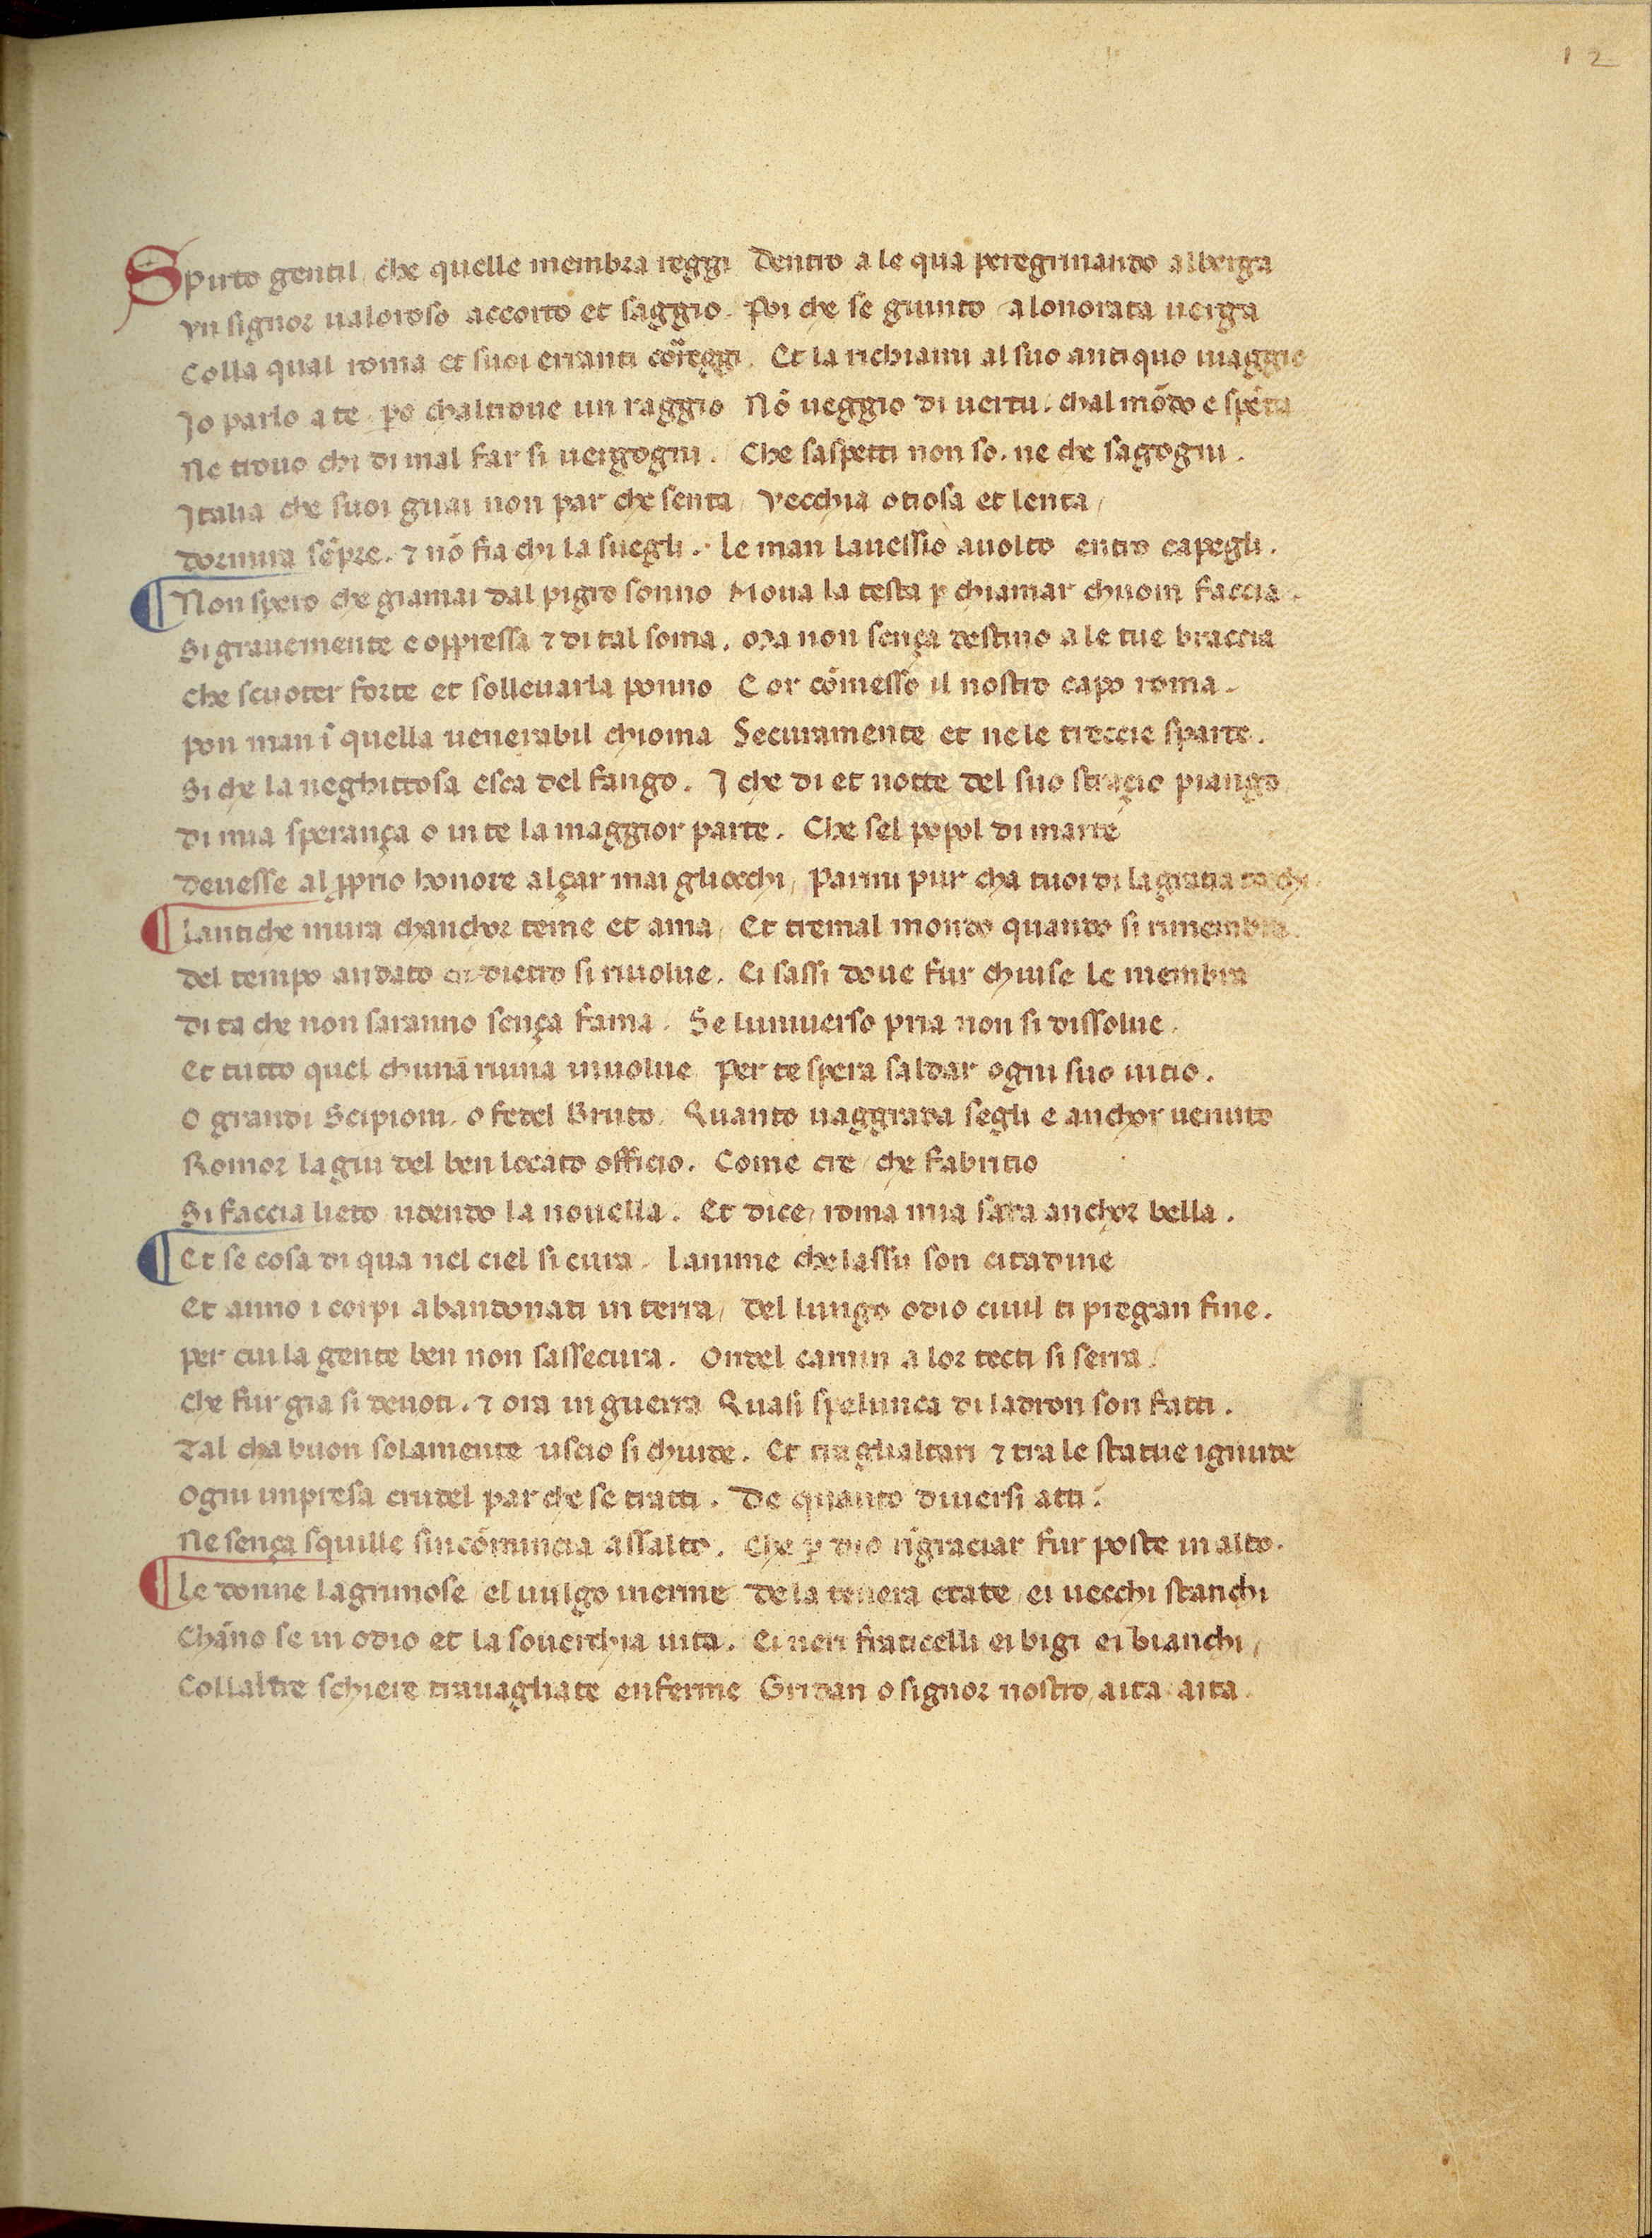 12
Spirto gentil, che quelle membra reggi Dentro a le qua peregrinando alberga
Vn signor ualoroso accorto et saggio. Poi che se giunto a lonorata uerga
Colla qual roma et suoi erranti correggi. Et la richiami al suo antiquo uiaggio
Jo parlo a te po chaltroue un raggio Nō ueggio di uertu, chal mōdo e spēta
Ne trouo chi di mal far si uergogni. Che saspetti non so. ne che sagogni.
Jtalia che suoi guai non par che senta, Vecchia otiosa et lenta,
dormira sēpre. ⁊ nō fia chi la suegli. le man lauessio auolto entro capegli.
Non spero che giamai dal pigro sonno Moua la testa ꝑ chiamar chuom faccia.
Si grauemente e oppressa ⁊ di tal soma. Ma non sença destino a le tue braccia
che scuoter forte et solleuarla ponno E or cōmesso il nostro capo roma.
pon man ī quella uenerabil chioma Securamente et nele treccie sparte.
Si che la neghittosa esca del fango. J che di et notte del suo straçio piango,
di mia sperança o in te la maggior parte. Che sel popol di marte
deuesse al ꝓprio honore alçar mai gliocchi, Parmi pur cha tuoi di la gratia tocchi.
Lantiche mura chanchor teme et ama, Et tremal mondo quando si rimembra
del tempo andato en dietro si riuolue. Ei sassi doue fur chiuse le membra
di ta che non saranno sença fama. Se luniuerso pria non si dissolue.
et tutto quel chunā ruina inuolue Per te spera saldar ogni suo uitio.
O grandi Scipioni. o fedel Bruto. Quanto uaggrada segli e anchor uenuto
Romor lagiu del ben locato officio. Come cre, che Fabritio
Si faccia lieto udendo la nouella. Et dice, roma mia sara anchor bella.
Et se cosa di qua nel ciel si cura. Lanime che lassu son citadine
Et anno i corpi abandonati in terra, del lungo odio ciuil ti pregan fine.
per cui la gente ben non sassecura. Ondel camin a lor tecti si serra.
che fur gia si deuoti. ⁊ ora in guerra Quasi spelunca di ladron son fatti.
Tal cha buon solamente uscio si chiude. Et tra glialtari ⁊ tra le statue ignude
ogni impresa crudel par che se tratti. De quanto diuersi atti.
Ne sença squille sincōmincia assalto. Che ꝑ dio ringraciar fur poste in alto.
Le donne lagrimose el uulgo inerme de la tenera etate, ei uecchi stanchi
Chāno se in odio et la souerchia uita. Ei neri fraticelli ei bigi ei bianchi,
Collaltre schiere trauagliate enferme Gridan o signor nostro, aita aita.